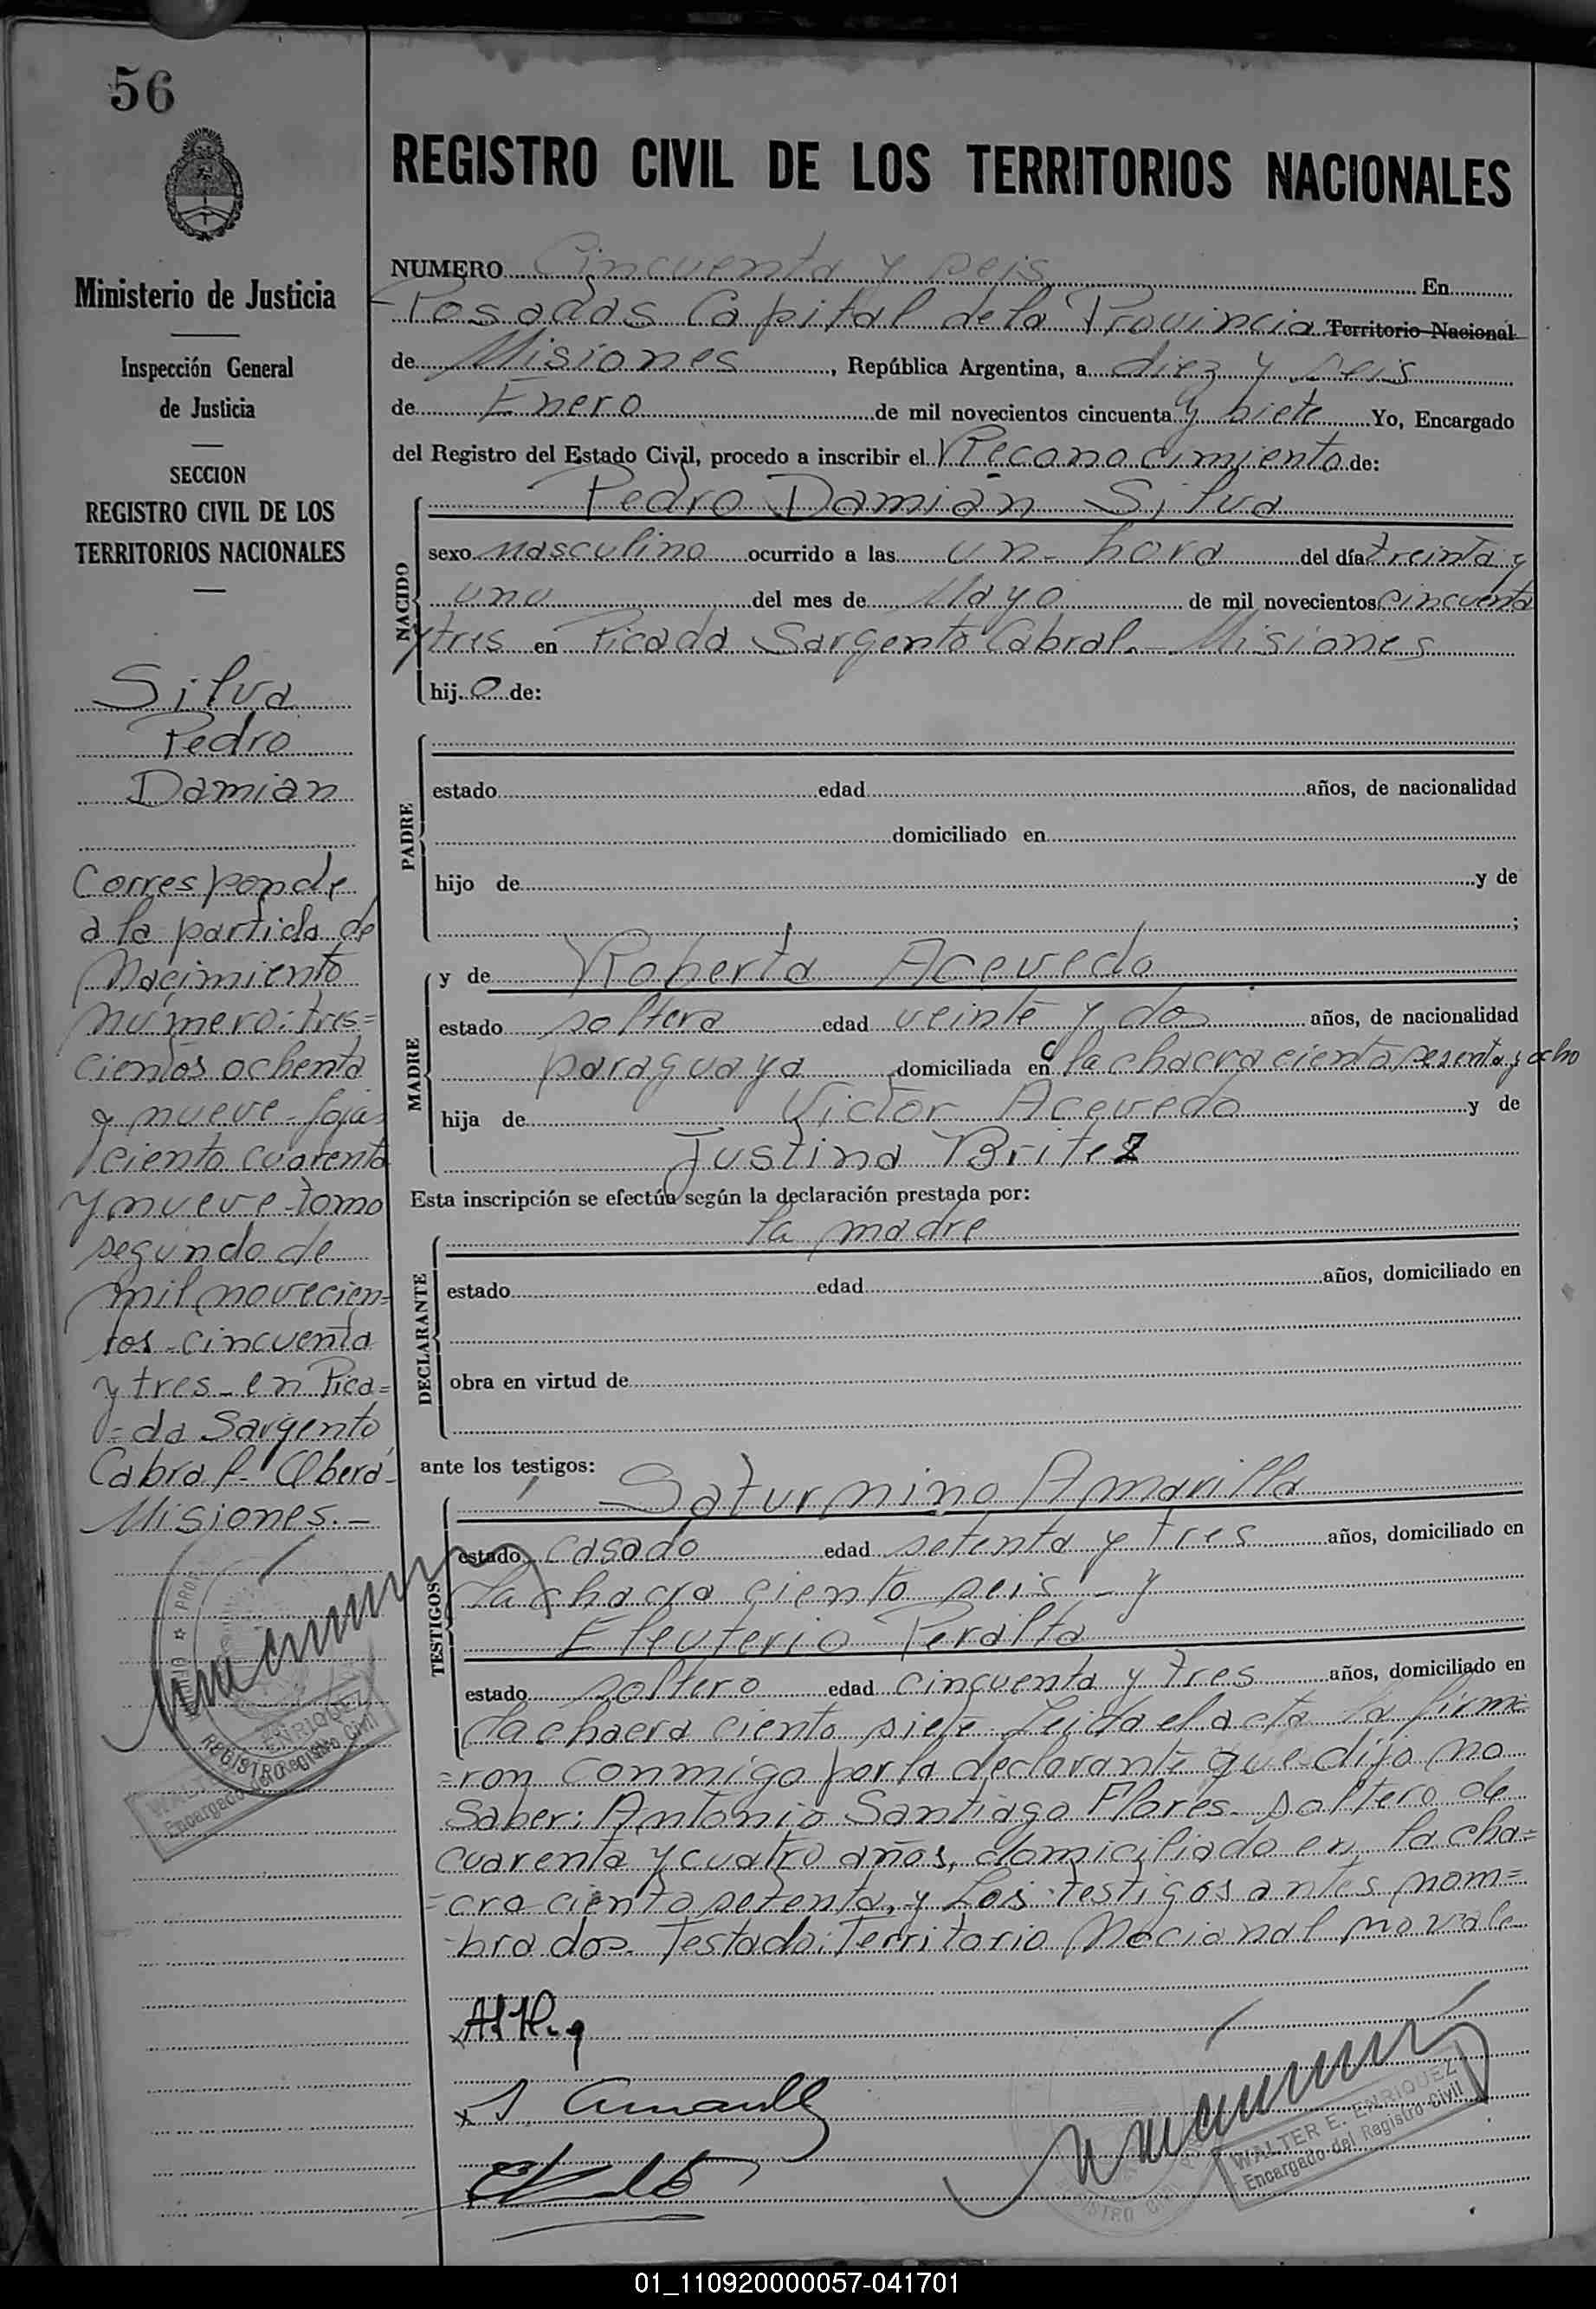 56
Ministerio de Justicia
Inspección General
de Justicia
SECCION
REGISTRO CIVIL DE LOS
TERRITORIOS NACIONALES
Silva
Pedro
Damián
Corresponde
a la partida de
Nacimiento
número: tres=
cientos ochenta
y nueve - foja
ciento cuarenta
y nueve - tomo
segundo de
mil novecien=
tos - cincuenta
y tres - en Pica=
=da Sargento
Cabral - Oberá -
Misiones.-
REGISTRO CIVIL
ENRIQUEZ
Encargado del Registro Civil
REGISTRO CIVIL DE LOS TERRITORIOS NACIONALES
NUMERO Cincuenta y seis En
Posadas Capital de la Provincia Territorio Nacional
de Misiones, República Argentina, a diez y seis
de Enero de mil novecientos cincuenta y siete Yo, Encargado
del Registro del Estado Civil, procedo a inscribir el Reconocimiento de:
Pedro Damián Silva
NACIDO
sexo masculino ocurrido a las un- hora del día treinta y
uno del mes de Mayo de mil novecientos cincuenta
y tres en Picada Sargento Cabral.- Misiones
hijo de:
PADRE
estado edad años, de nacionalidad
domiciliado en
hijo de y de
;
MADRE
y de Roberta Acevedo
estado soltera edad veinte y dos años, de nacionalidad
paraguaya domiciliada en la chacra ciento sesenta y ocho
hija de Victor Acevedo y de
Justina Britez
Esta inscripción se efectúa según la declaración prestada por:
la madre
DECLARANTE
estado edad años, domiciliado en
obra en virtud de
ante los testigos:
Saturnino Amarilla
TESTIGOS
estado casado edad setenta y tres años, domiciliado en
la chacra ciento seis - y
Eleuterio Peralta
estado soltero edad cincuenta y tres años, domiciliado en
la chacra ciento siete Leida el acta la firma=
=ron conmigo por la declarante que dijo no
saber: Antonio Santiago Flores - soltero de
cuarenta y cuatro años, domiciliado en la cha=
=cra ciento setenta, y los testigos antes nom=
-brados. Testado: Territorio Nacional no vale
S. Amarilla
WALTER E. ENRIQUEZ
Encargado del Registro Civil
01_110920000057-041701